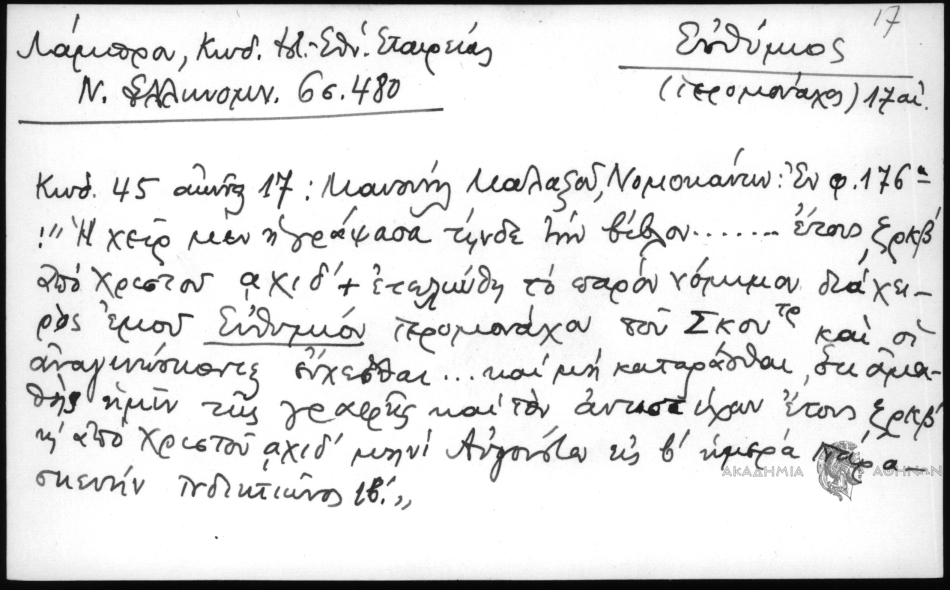 17
Λάμπρου, Κωδ. Ἱστ.-Εθν. Εταιρείας
Εὐθύμιος
Ν. Ἑλληνομν. 6 σ. 480
(ἱερομονάχος) 17 αἰ.
Κωδ. 45 αἰῶνος 17 : Μανουὴλ Μαλαξοῦ, Νομοκάνων: Ἐν φ. 176α
!" Ἡ χεὶρ μὲν ἡ γράψασα τήνδε τὴν βίβλον........ ἔτους ζρκβ
ἀπὸ Χριστοῦ αχιδ' + ἐτελιώθη τὸ παρὸν νόμιμον διὰ χει-
ρὸς ἐμοῦ Εὐθυμιόυ ἱερομονάχου τοῦ Σκουτρ καὶ οἱ
ἀναγινώσκοντες εὔχεσθαι... καὶ μὴ καταρᾶσθαι, ὅτι ἀμα-
θὴς ἠμὶν τῆς γραφῆς καὶ τὸν ἔτους ζρκβ'
ἀπὸ Χριστοῦ αχιδ' μηνὶ Αὐγούστω εἰς β' ἡμερα Παρα-
σκευὴν ἰνδικτιῶνος ιβ'.,,
ΑΚΑΔΗΜΙΑ ΑΘΗΝΩΝ